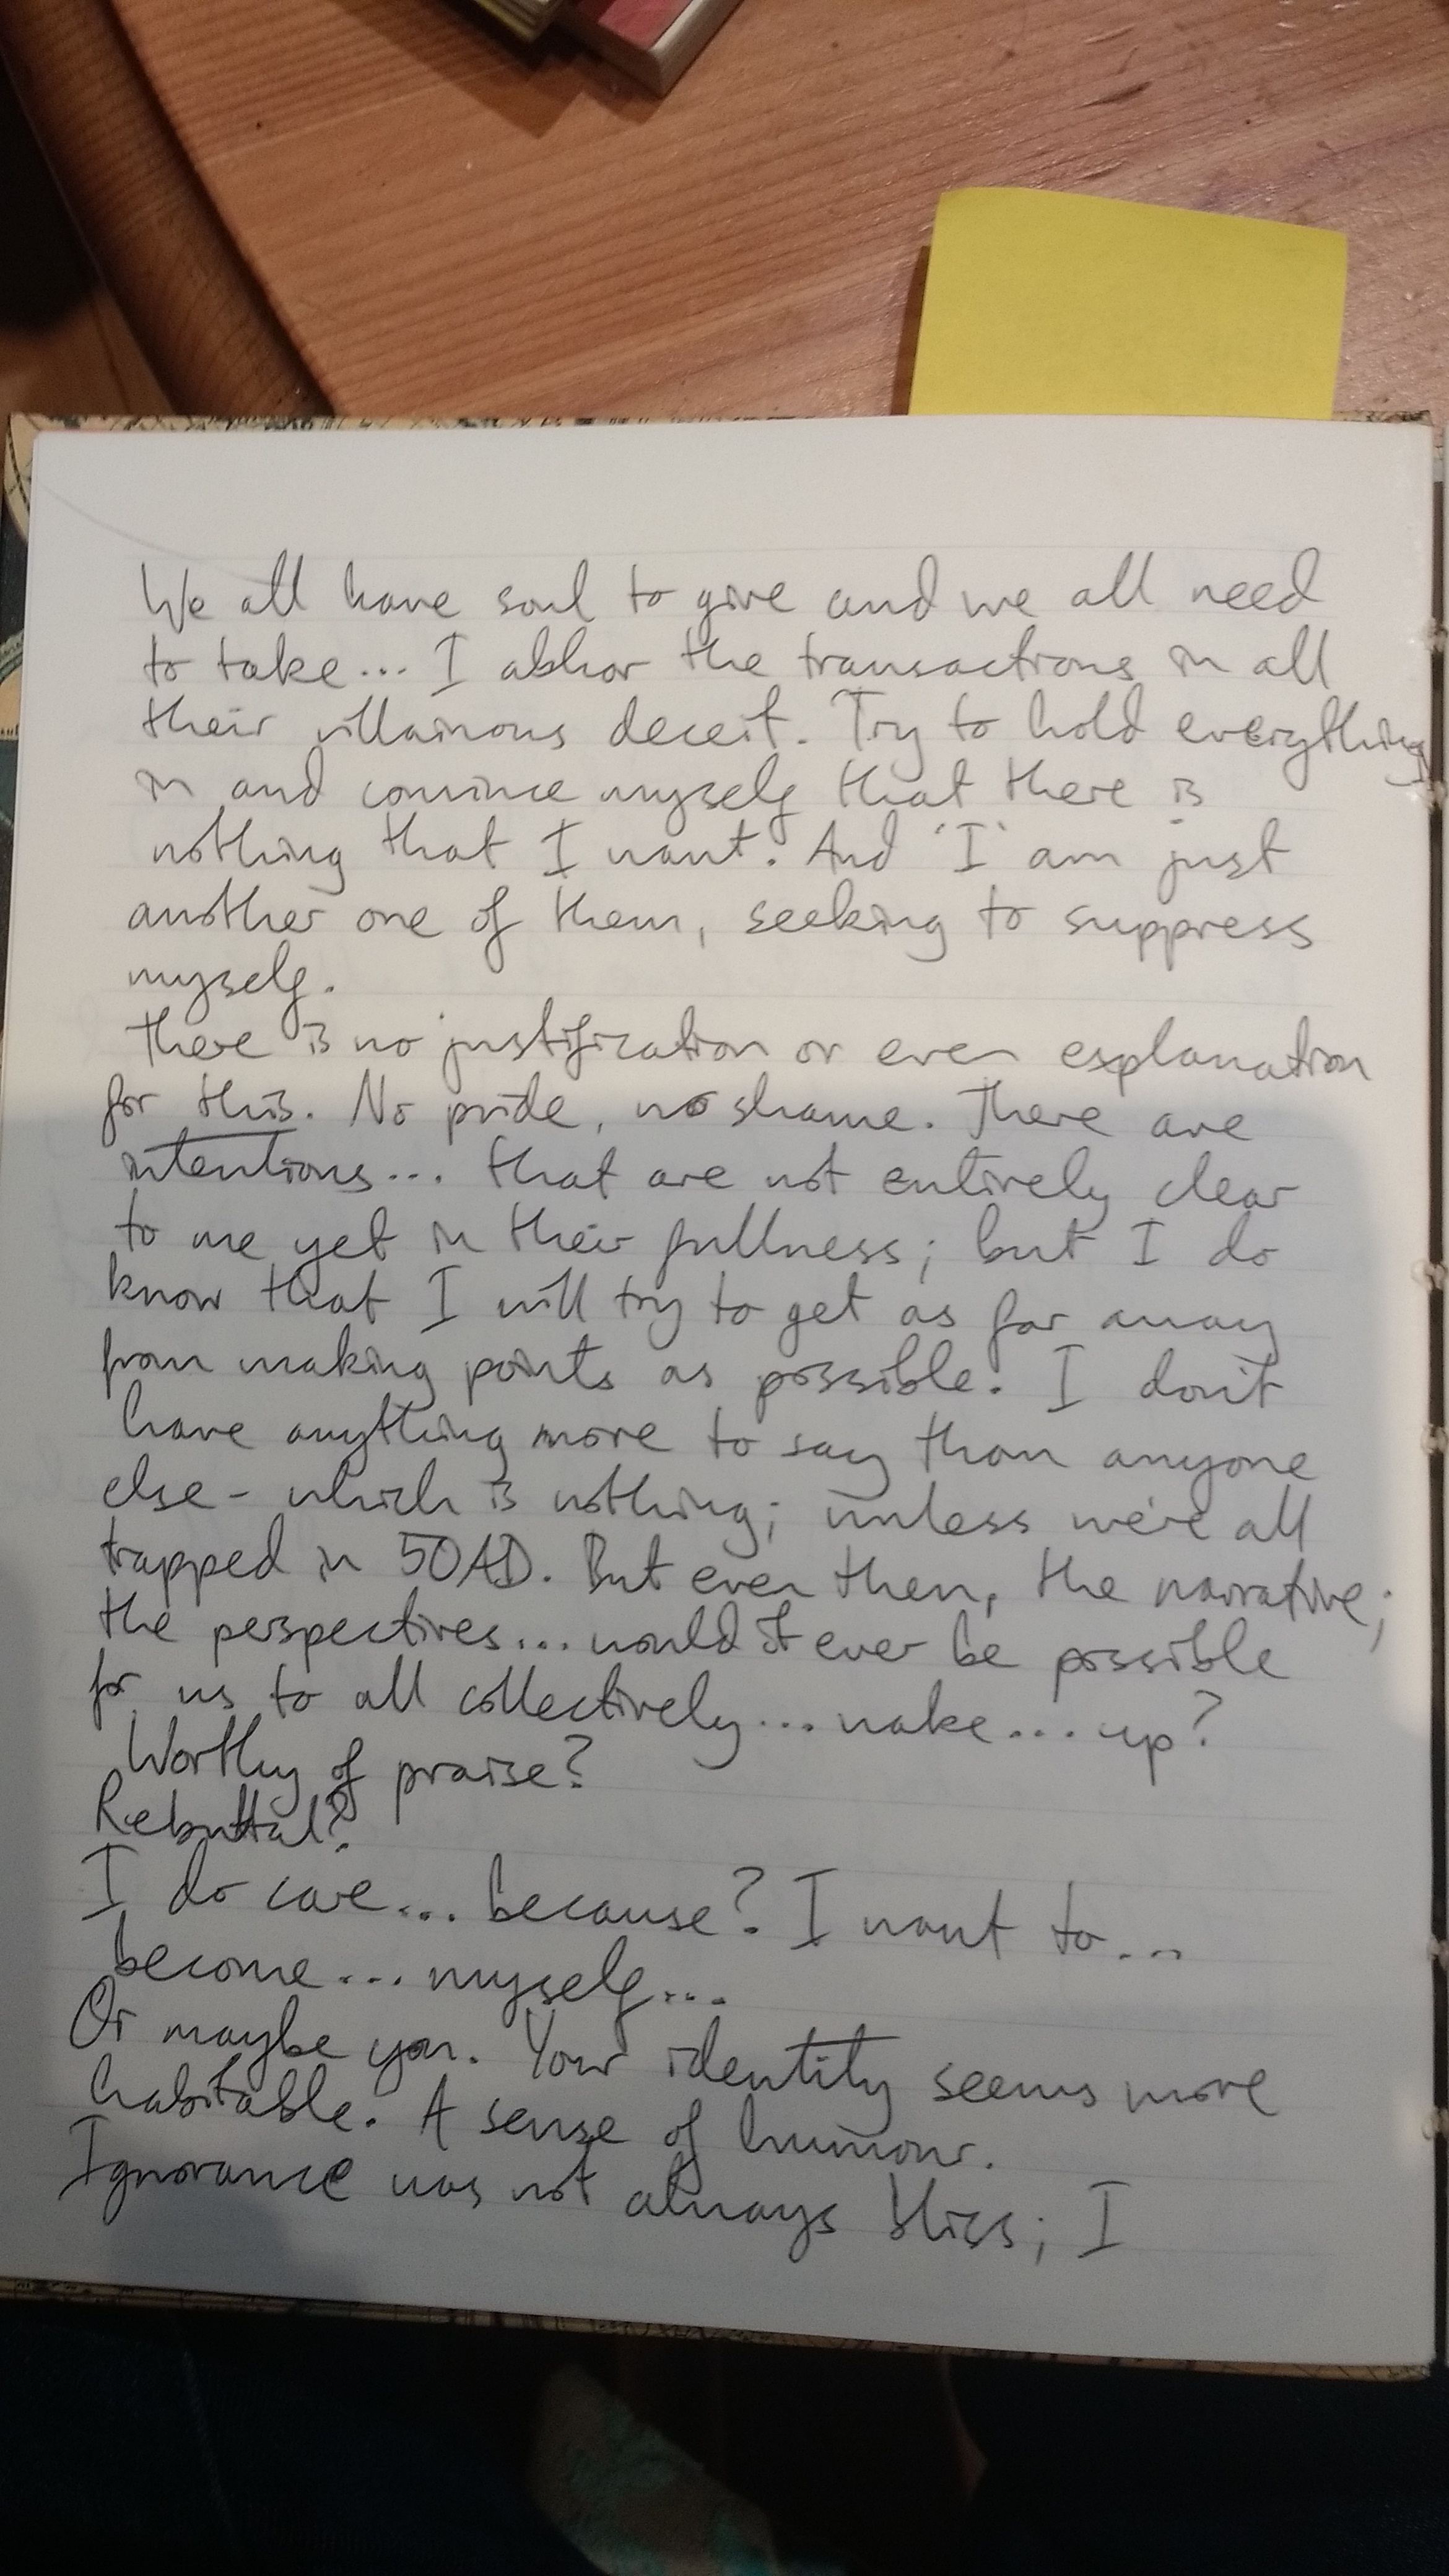 We all have soul to give and we all need
to take... I abhor the transactions in all
their villainous deceit. Try to hold everything
in and convince myself that there is
nothing that I want. And 'I' am just
another one of them, seeking to suppress
myself.
There is no justification or even explanation
for this. No pride, no shame. There are
intentions... that are not entirely clear
to me yet in their fullness; but I do
know that I will try to get as far away
from making points as possible. I don't
have anything more to say than anyone
else - which is nothing; unless we're all
trapped in 50AD. But even then, the narrative;
the perspectives... would it ever be possible
for us to all collectively... wake... up?
Worthy of praise?
Rebuttal?
I do care... because? I want to...
become... myself...
Or maybe you. Your identity seems more
habitable. A sense of humour.
Ignorance was not always bliss; I